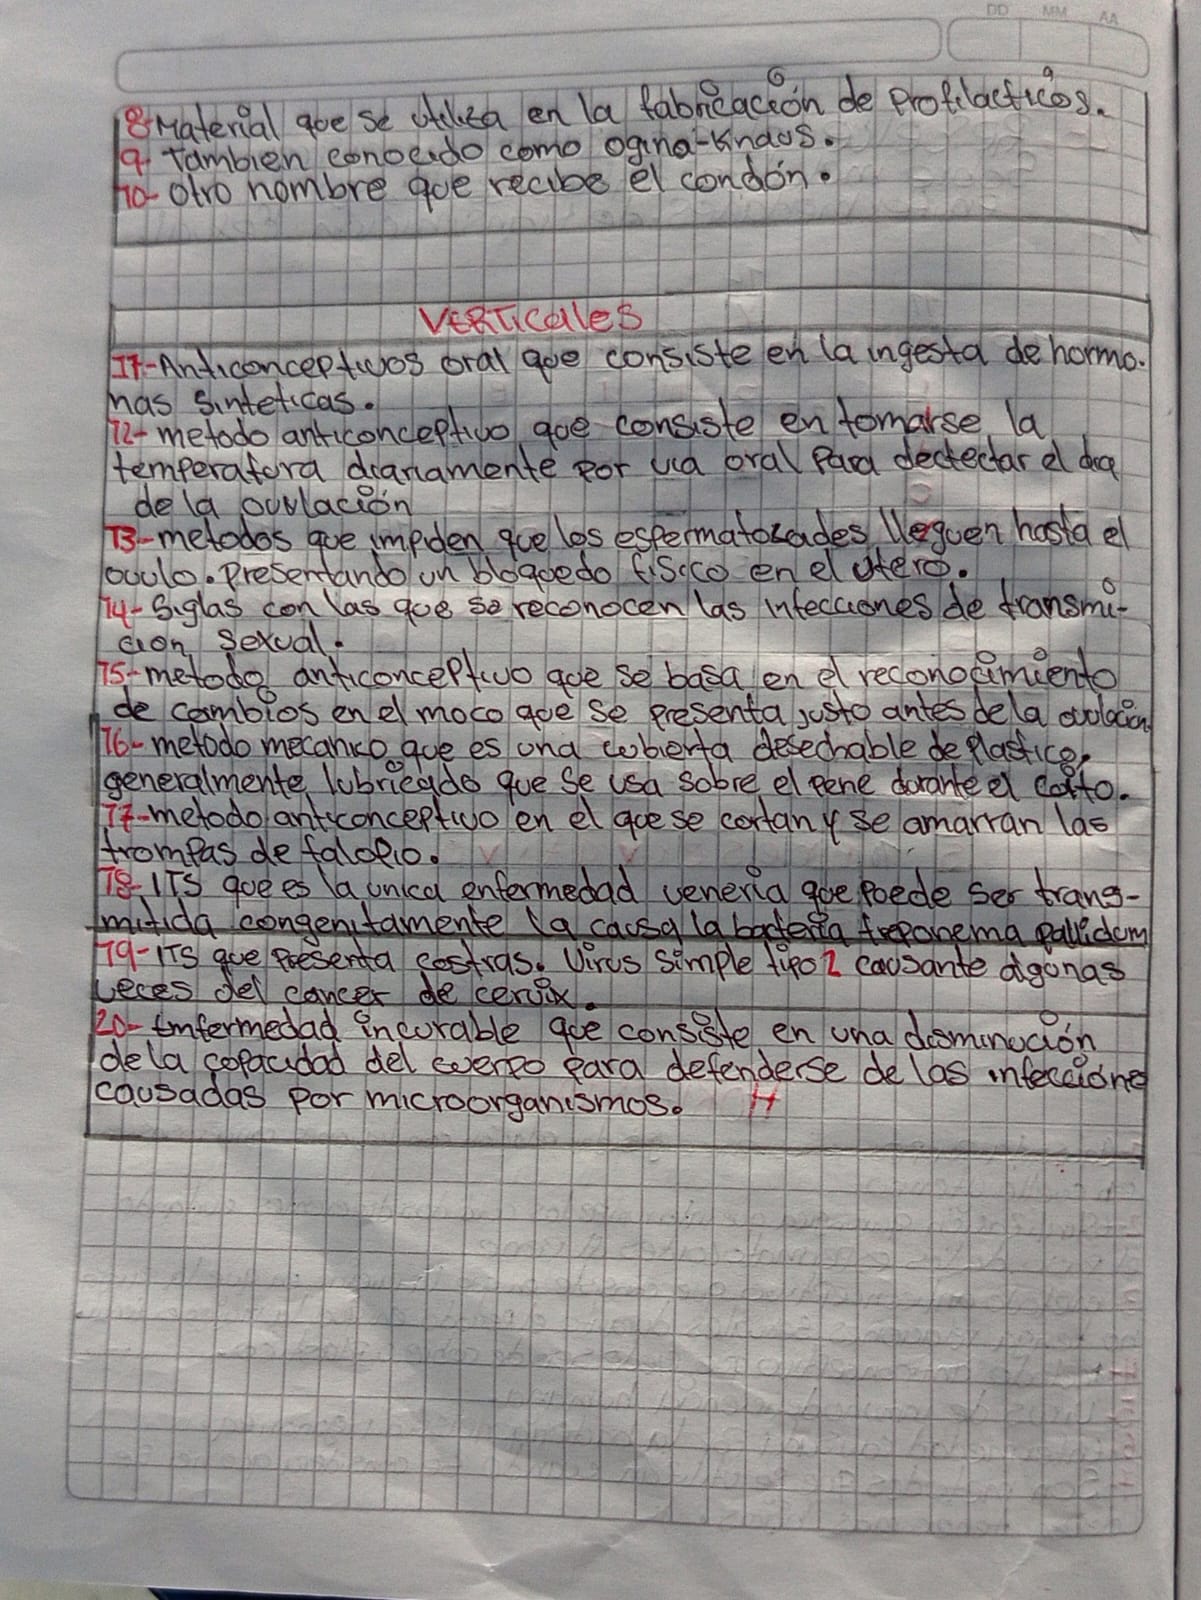 DD MM AA
8-Material que se utiliza en la fabricación de profilacticos.
9- Tambien conocido como ogina-knaus.
10- otro nombre que recibe el condón.
VERTICales
11-Anticonceptivos oral que consiste en la ingesta de hormo-
nas sinteticas.
12- metodo anticonceptivo que consiste en tomarse la
temperatura diariamente por via oral Para dectectar el dia
de la ovulación
13-metodos que impiden que los espermatozades lleguen hasta el
ovulo. Presentando un bloquedo fisico en el utero.
14- siglas con las que se reconocen las infecciones de transmi-
cion sexual.
15-metodo anticonceptivo que se basa en el reconocimiento
de cambios en el moco que se presenta justo antes de la ovulación
16- metodo mecanico que es una cubierta desechable de plastico,
generalmente lubricado que se usa sobre el pene durante el coito.
17-metodo anticonceptivo en el que se cortan y se amarran las
trompas de falopio.
18-ITS que es la unica enfermedad veneria que puede ser trans-
mitida congenitamente la causa la bacteria treponema pallidum
19-ITS que presenta costras. Virus simple tipo 2 causante algunas
veces del cancer de cervix.
20- Emfermedad incurable que consiste en una disminución
de la capacidad del cuerpo para defenderse de las infeccione
causadas por microorganismos. H